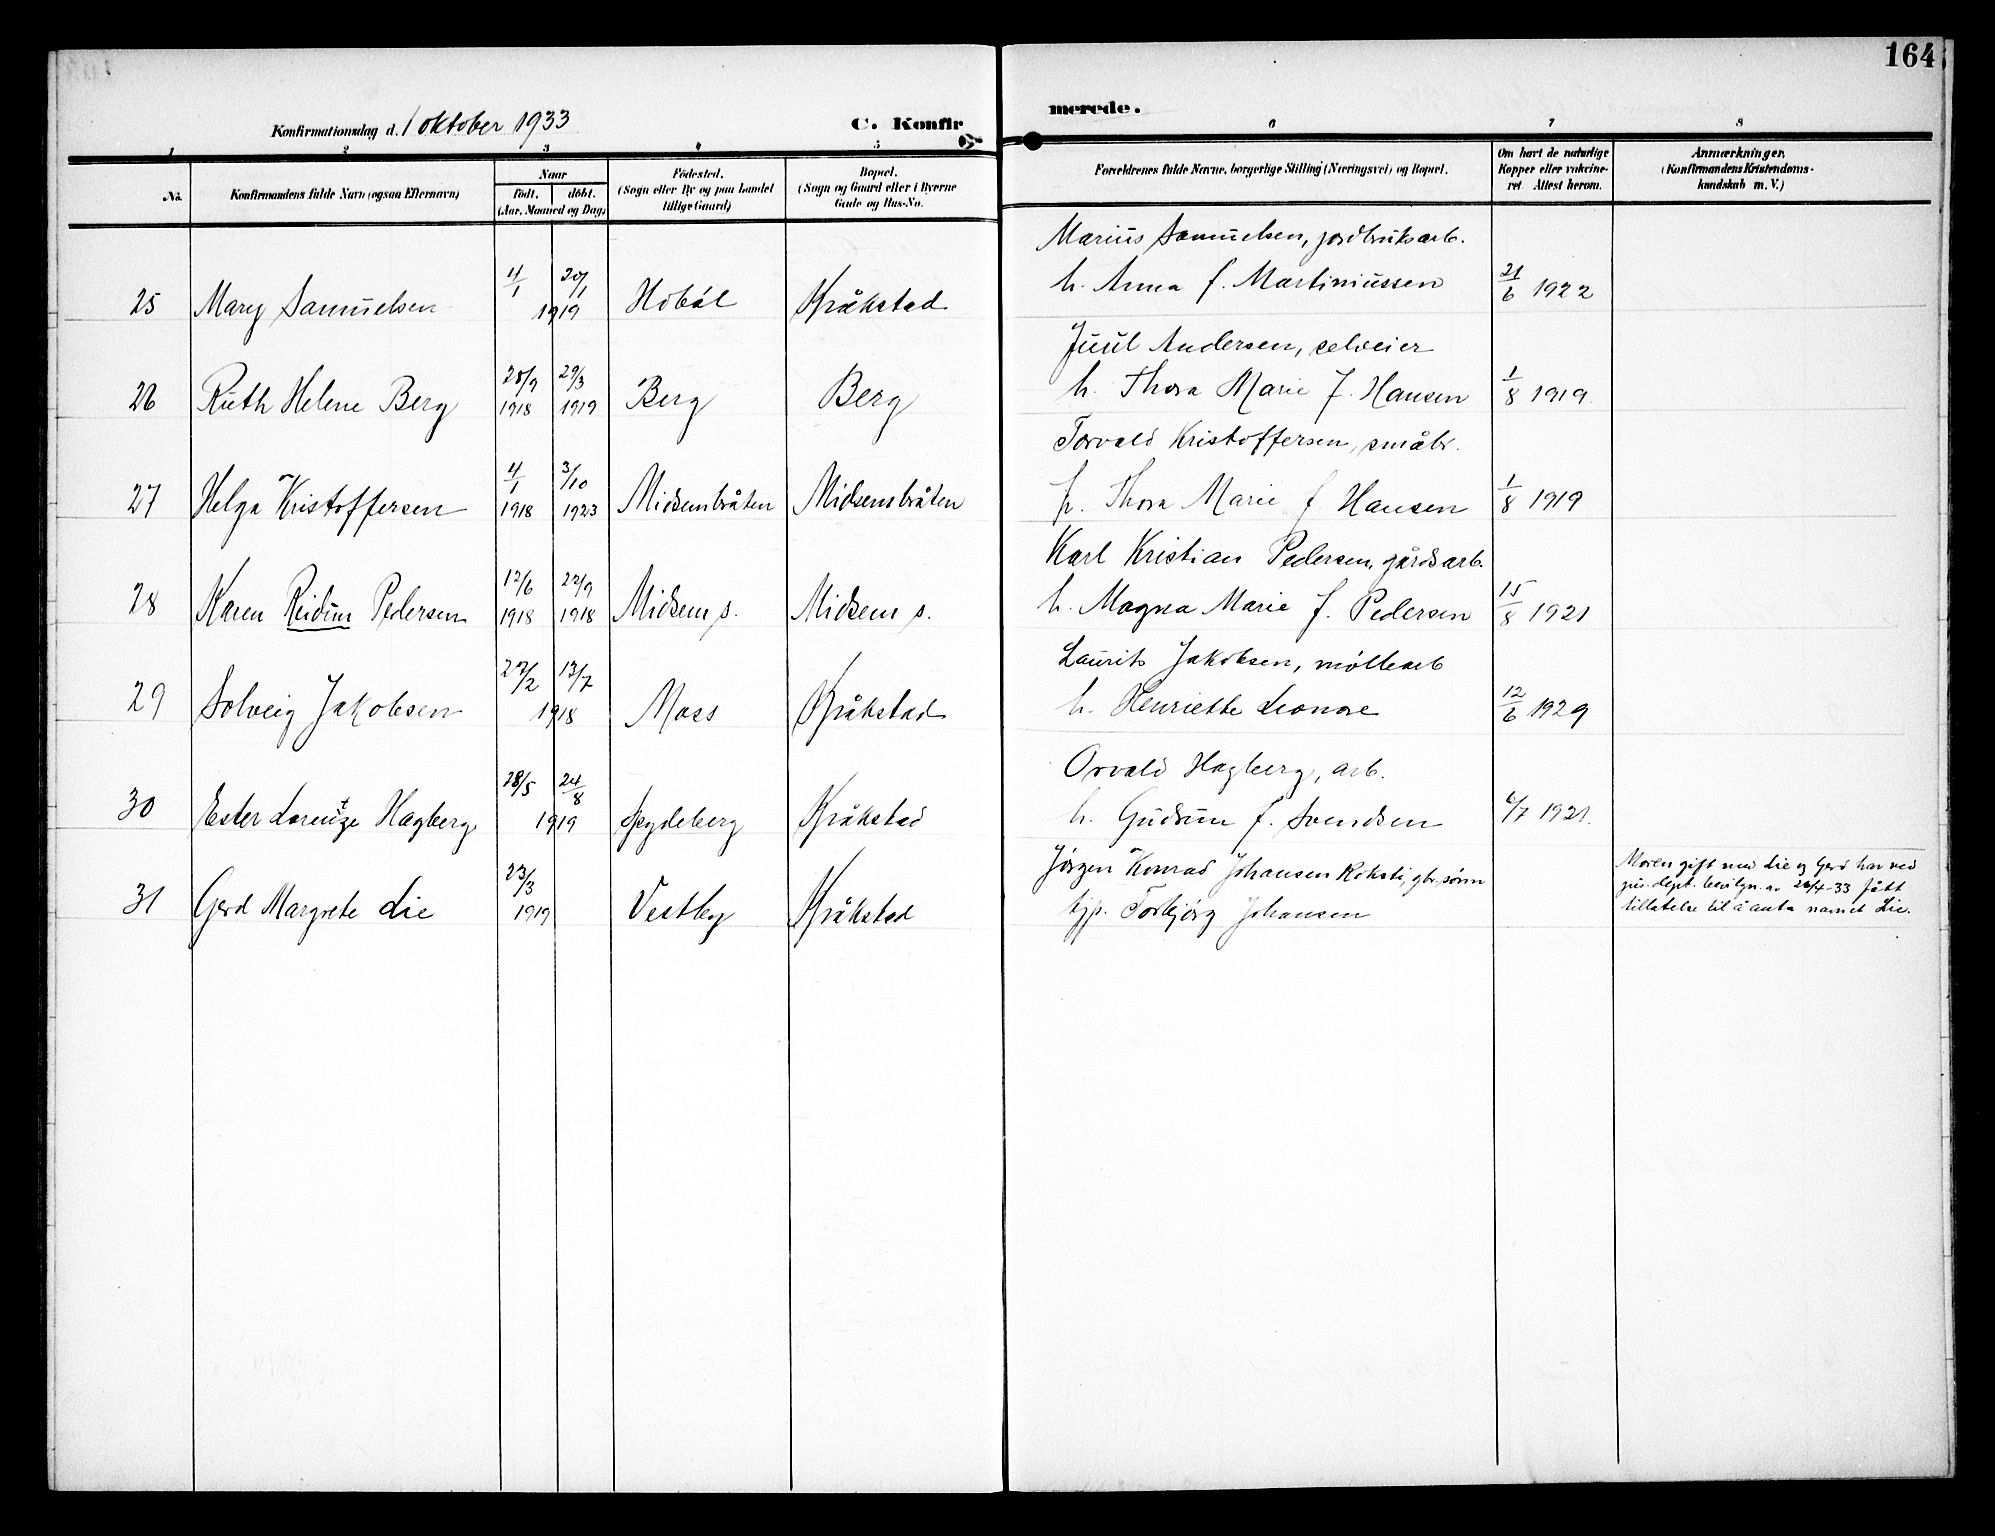 164
Konfirmationsdag d. 1 oktober 1933
C. Konfirmerede.
1 2 3 4 5 6 7 8
No.
Konfirmandens fulde Navn (ogsaa Efternavn)
Naar
født. døbt.
(Aar, Maaned og Dag)
Fødested.
(Sogn eller By og paa Landet
tillige Gaard)
Bopæl.
(Sogn og Gaard eller i Byerne
Gade og Hus-No.
Forældrenes fulde Navne, borgerlige Stilling (Næringsvei) og Bopæl.
Om havt de naturlige
Kopper eller vakcine-
ret. Attest herom.
Anmærkninger,
(Konfirmandens Kristendoms-
kundskab m. V.)
Marius Samuelsen, jordbruksarb.
25 Mary Samuelsen 4/1 20/1 1919 Hobøl Kråkstad h. Anna f. Martiniussen 21/6 1922
Juul Andersen, selveier
26 Ruth Helene Berg 28/9 1918 29/3 1919 Berg Berg h. Thora Marie f. Hansen 1/8 1919
Torvald Kristoffersen, småbr.
27 Helga Kristoffersen 4/1 1918 3/10 1923 Midsembråten Midsembråten h. Thora Marie f Hansen 1/8 1919
Karl Kristian Pedersen, gårdsarb.
28 Karen Reidun Pedersen 12/6 1918 22/9 1918 Midsem s. Midsem s. h. Magna Marie f. Pedersen 15/8 1921
Laurits Jakobsen, møllearb
29 Solveig Jakobsen 27/2 13/7 1918 Moss Kråkstad h. Henriette Leonore 12/6 1929
Orvald Hagberg, arb.
30 Ester Lorentze Hagberg 28/5 24/8 1919 Spydeberg Kråkstad h. Gudrun f. Svendsen 6/7 1921.
Jørgen Konrad Johansen Roksti, gbr.sønn
31 Gerd Margrete Lie 23/3 1919 Vestby Kråkstad tjp. Torbjørg Johansen
Moren gift med Lie og Gerd har ved
jus. dept. bevilgn. av 26/4-33 fått
tillatelse til å anta navnet Lie.